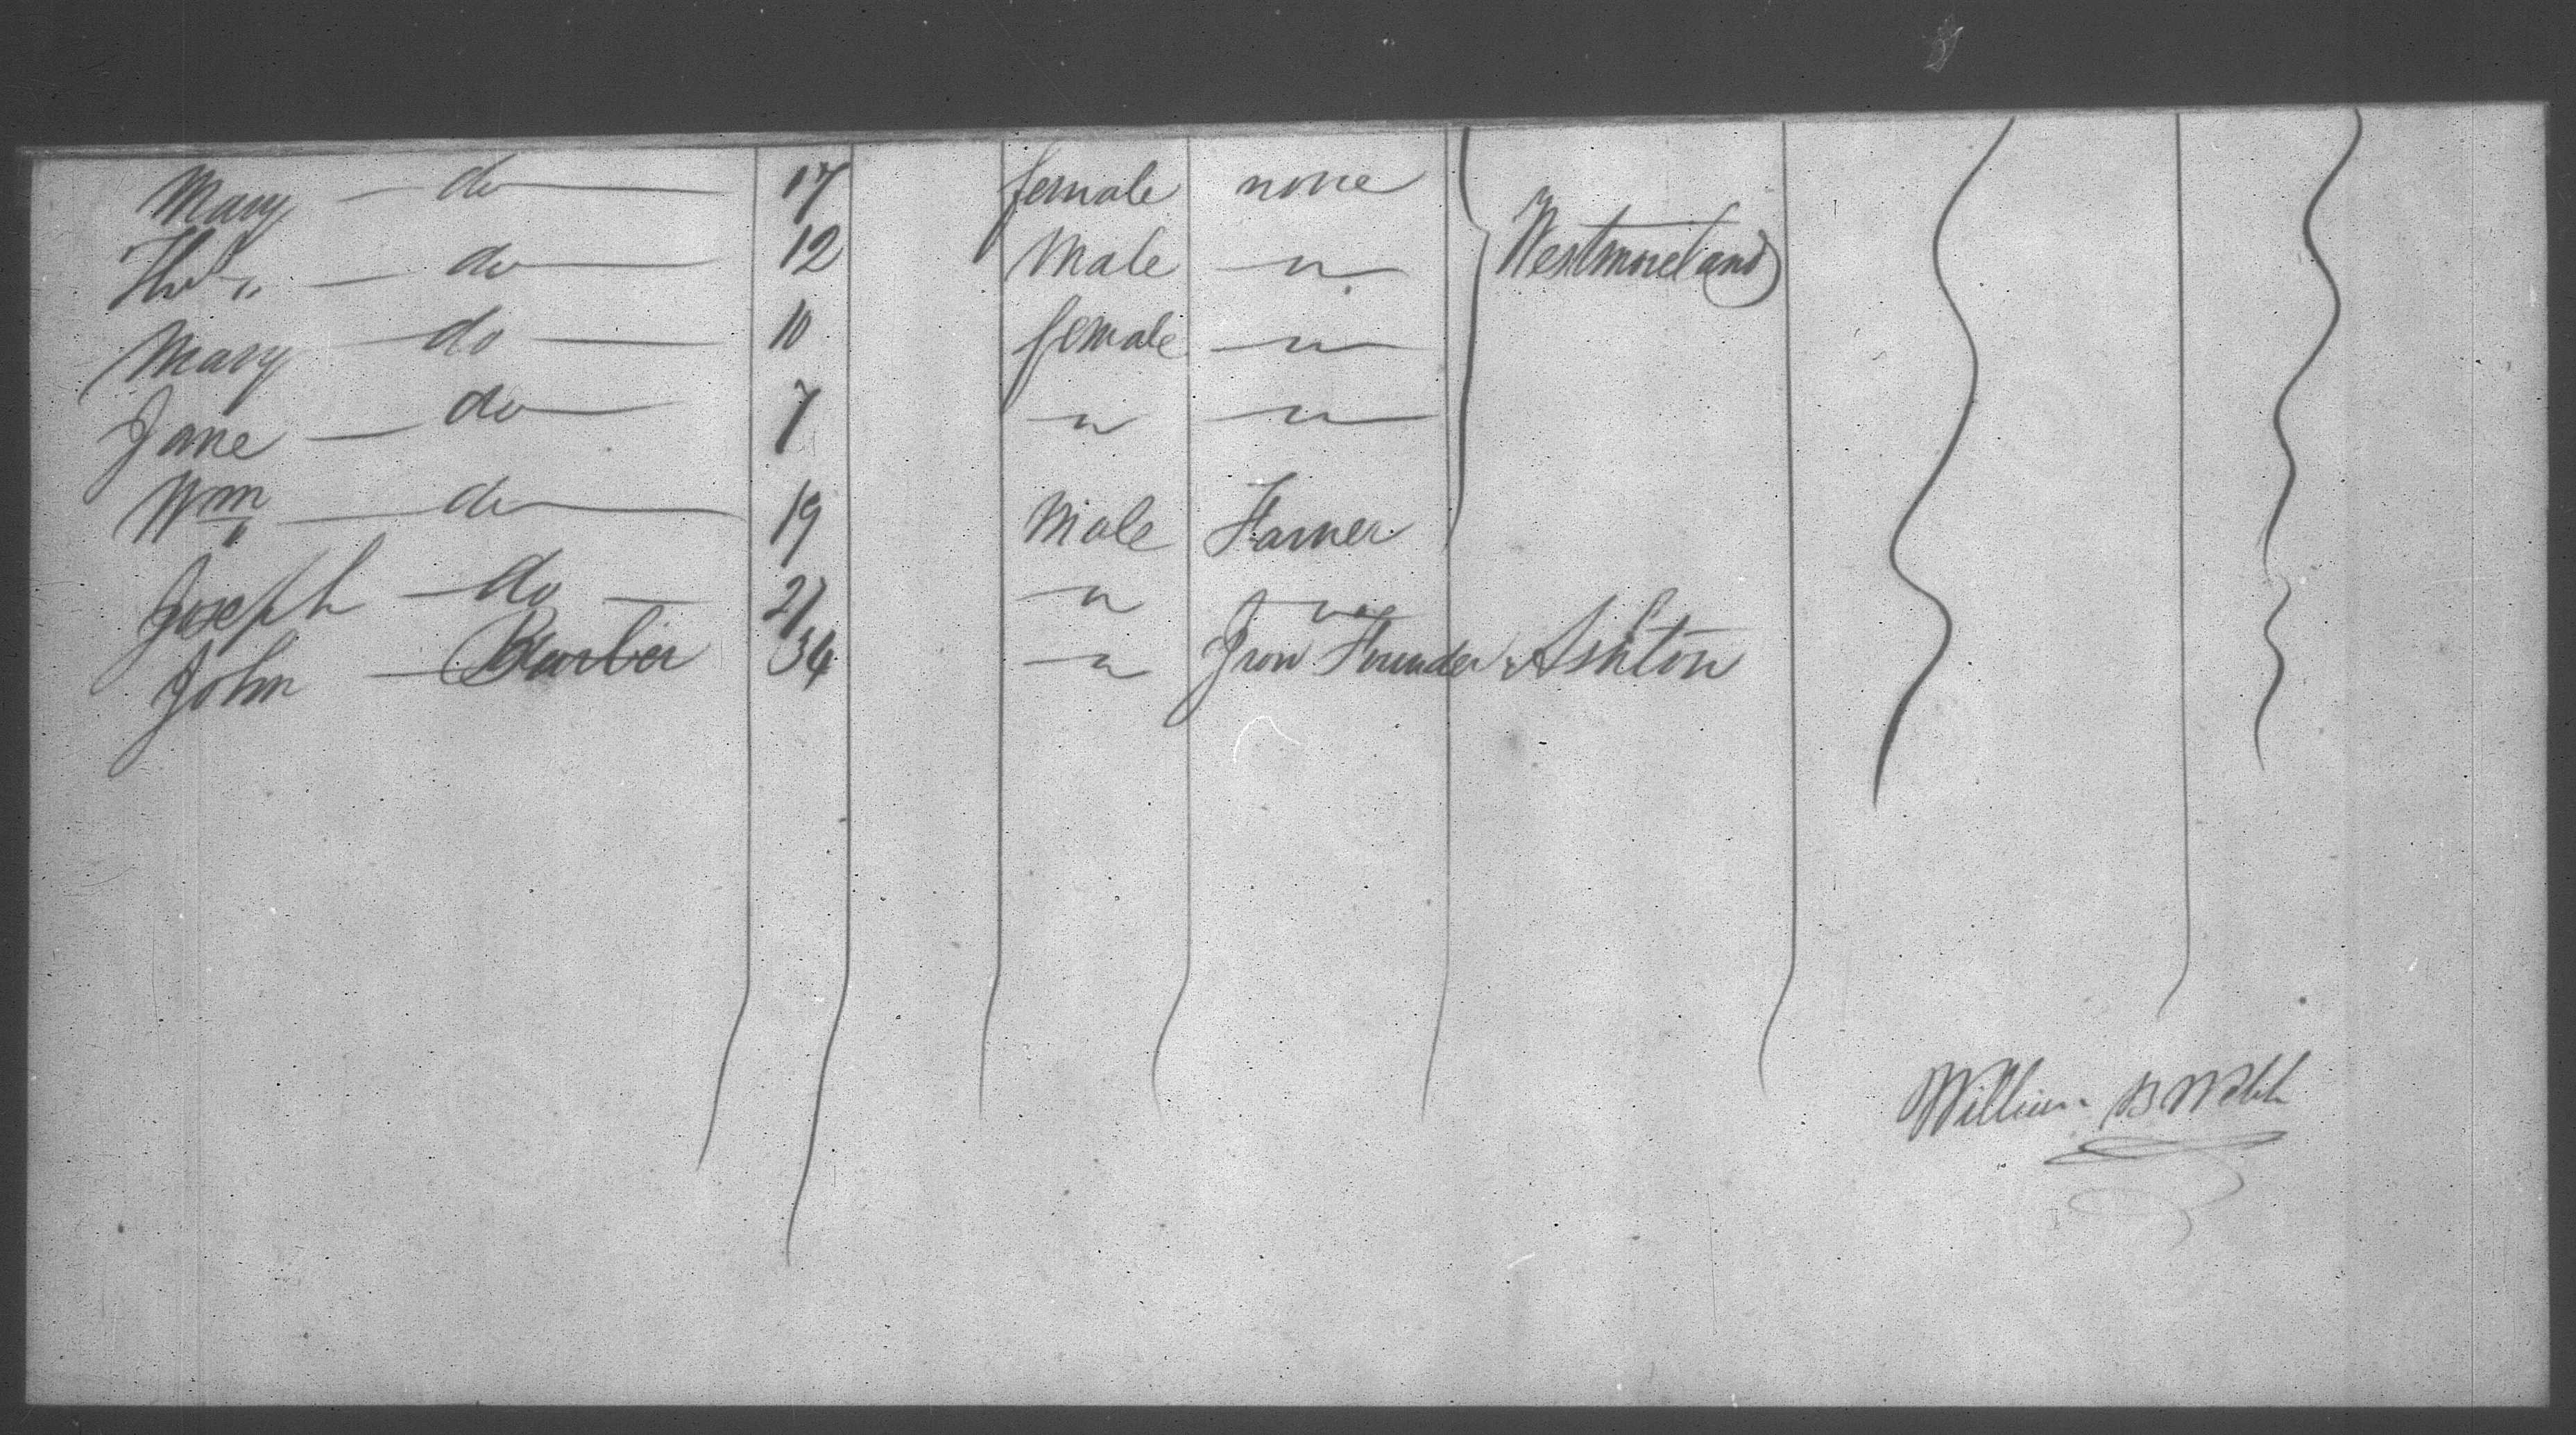 Mary — do — 17 female none
Tho.s „ — do — 12 Male — " — Westmoreland
Mary — do — 10 female — " —
Jane — do — 7 — " — — " —
Wm „ — do — 19 Male Farmer
Joseph — do — 21 — " — — " —
John — Barber 34 — " — Iron Founder Ashton
William B Welch